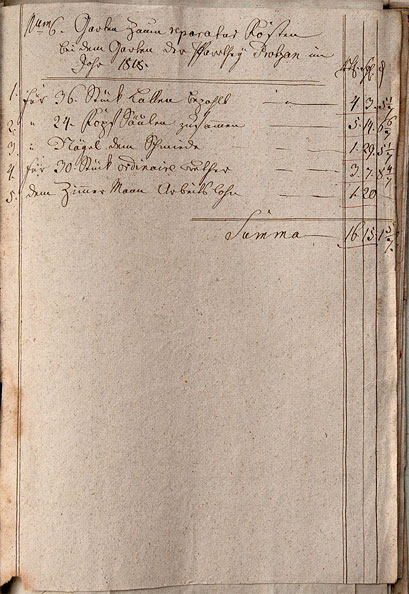 Num 6. Garten Zaun reparatur Kösten
bei dem Garten der Pfarrthey Protzan im
Jahr 1818.
1. für 36. Stück Latten bezahlt 4 3.
2. " 24. Kopf Säulen zusamen 5. 14.
3. " Nägel dem Schmiede 1. 29.
4. für 30 Stück ordinaire 3. 7.
5. dem Zimmer Mann Arbeitslohn 1. 20
Summa 16 15. 1